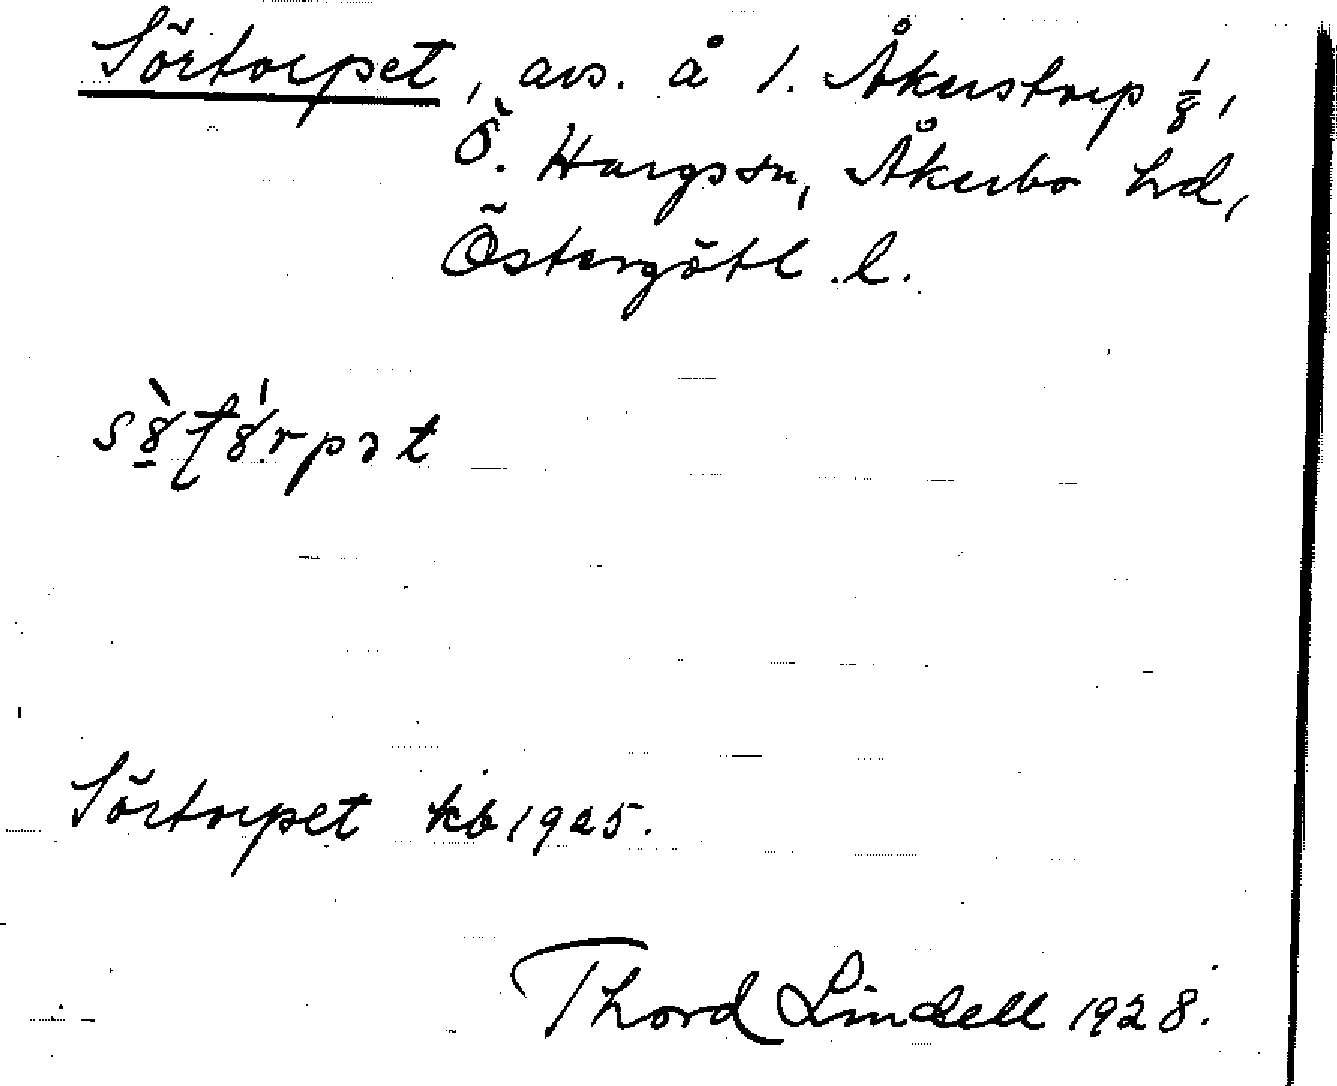 Sörtorpet, avs. å 1. Åkerstorp 1/8,
Ö. Hargs sn, Åkerbo hd,
Östergötl. l.
Sörtorpet kb 1925.
Thord Lindell 1928.